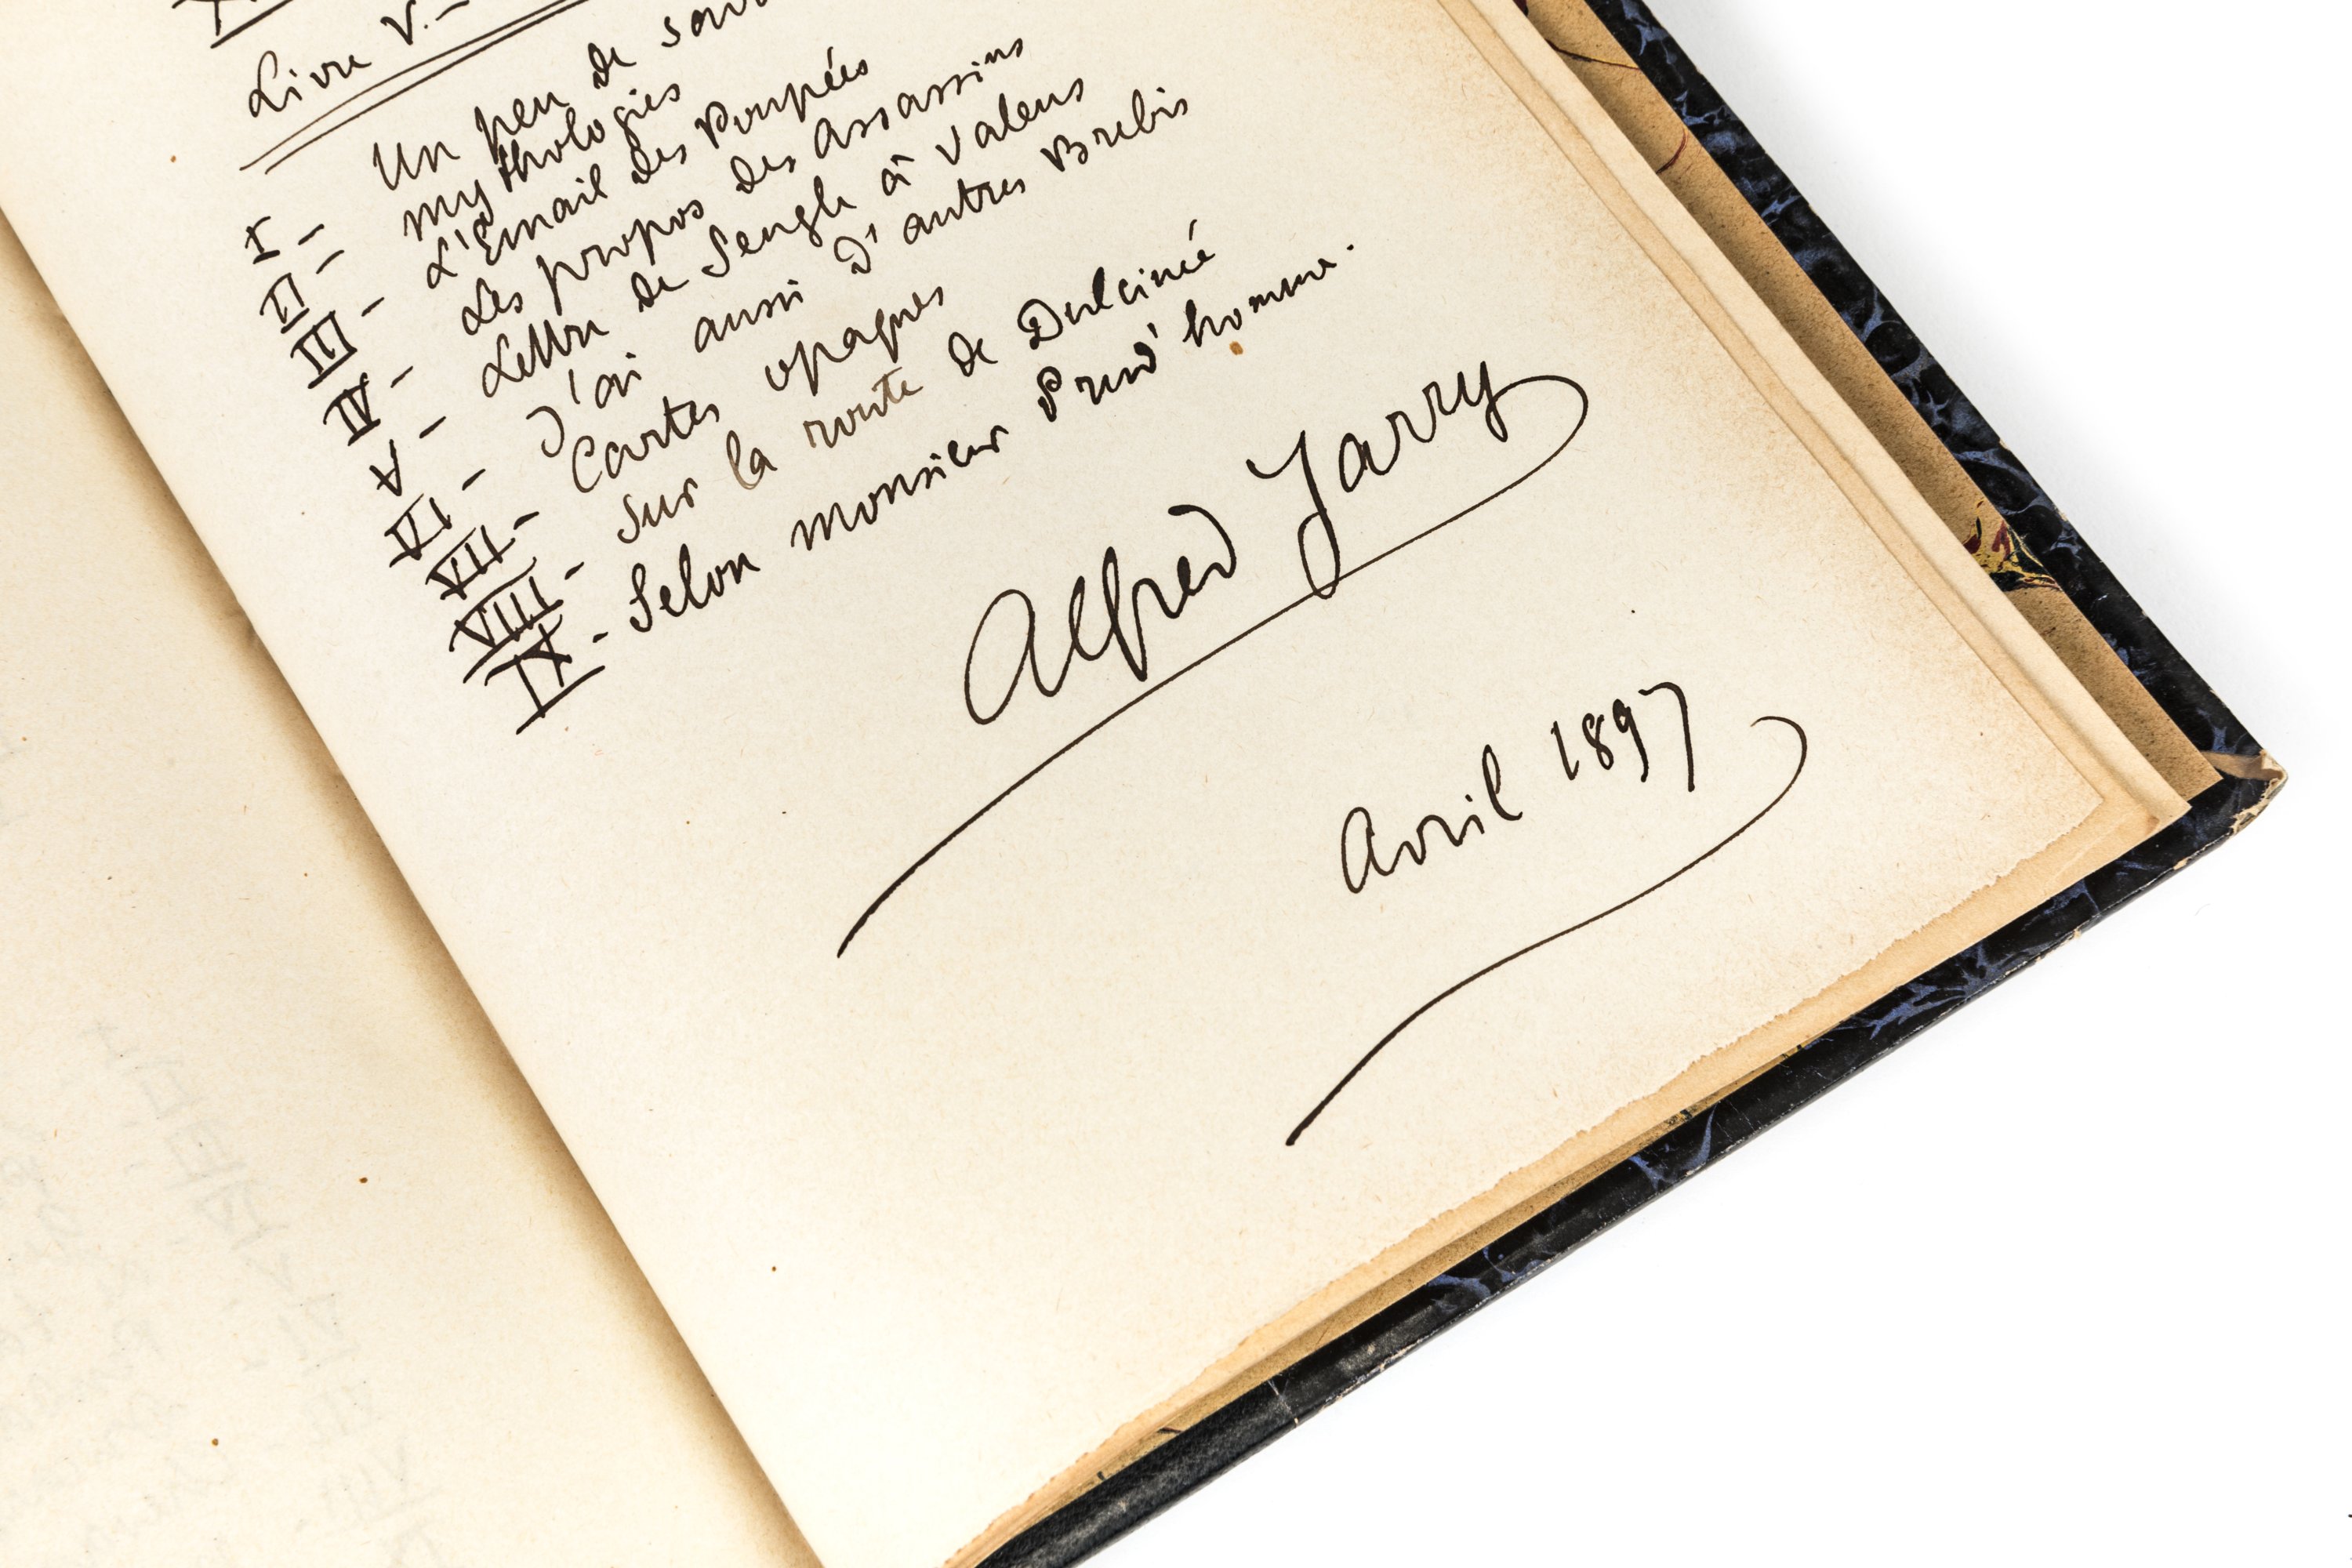 Livre V.-
I - Un peu de
II - mythologies
III - L'Email des Poupées
IV - Les propos des Assassins
V - Lettre de Sengle à Valens
VI - J'ai aussi d'autres Brebis
VII - Cartes opaques
VIII - Sur la route de Dulcinée
IX - Selon monsieur Prud'homme.
Alfred Jarry
Avril 1897